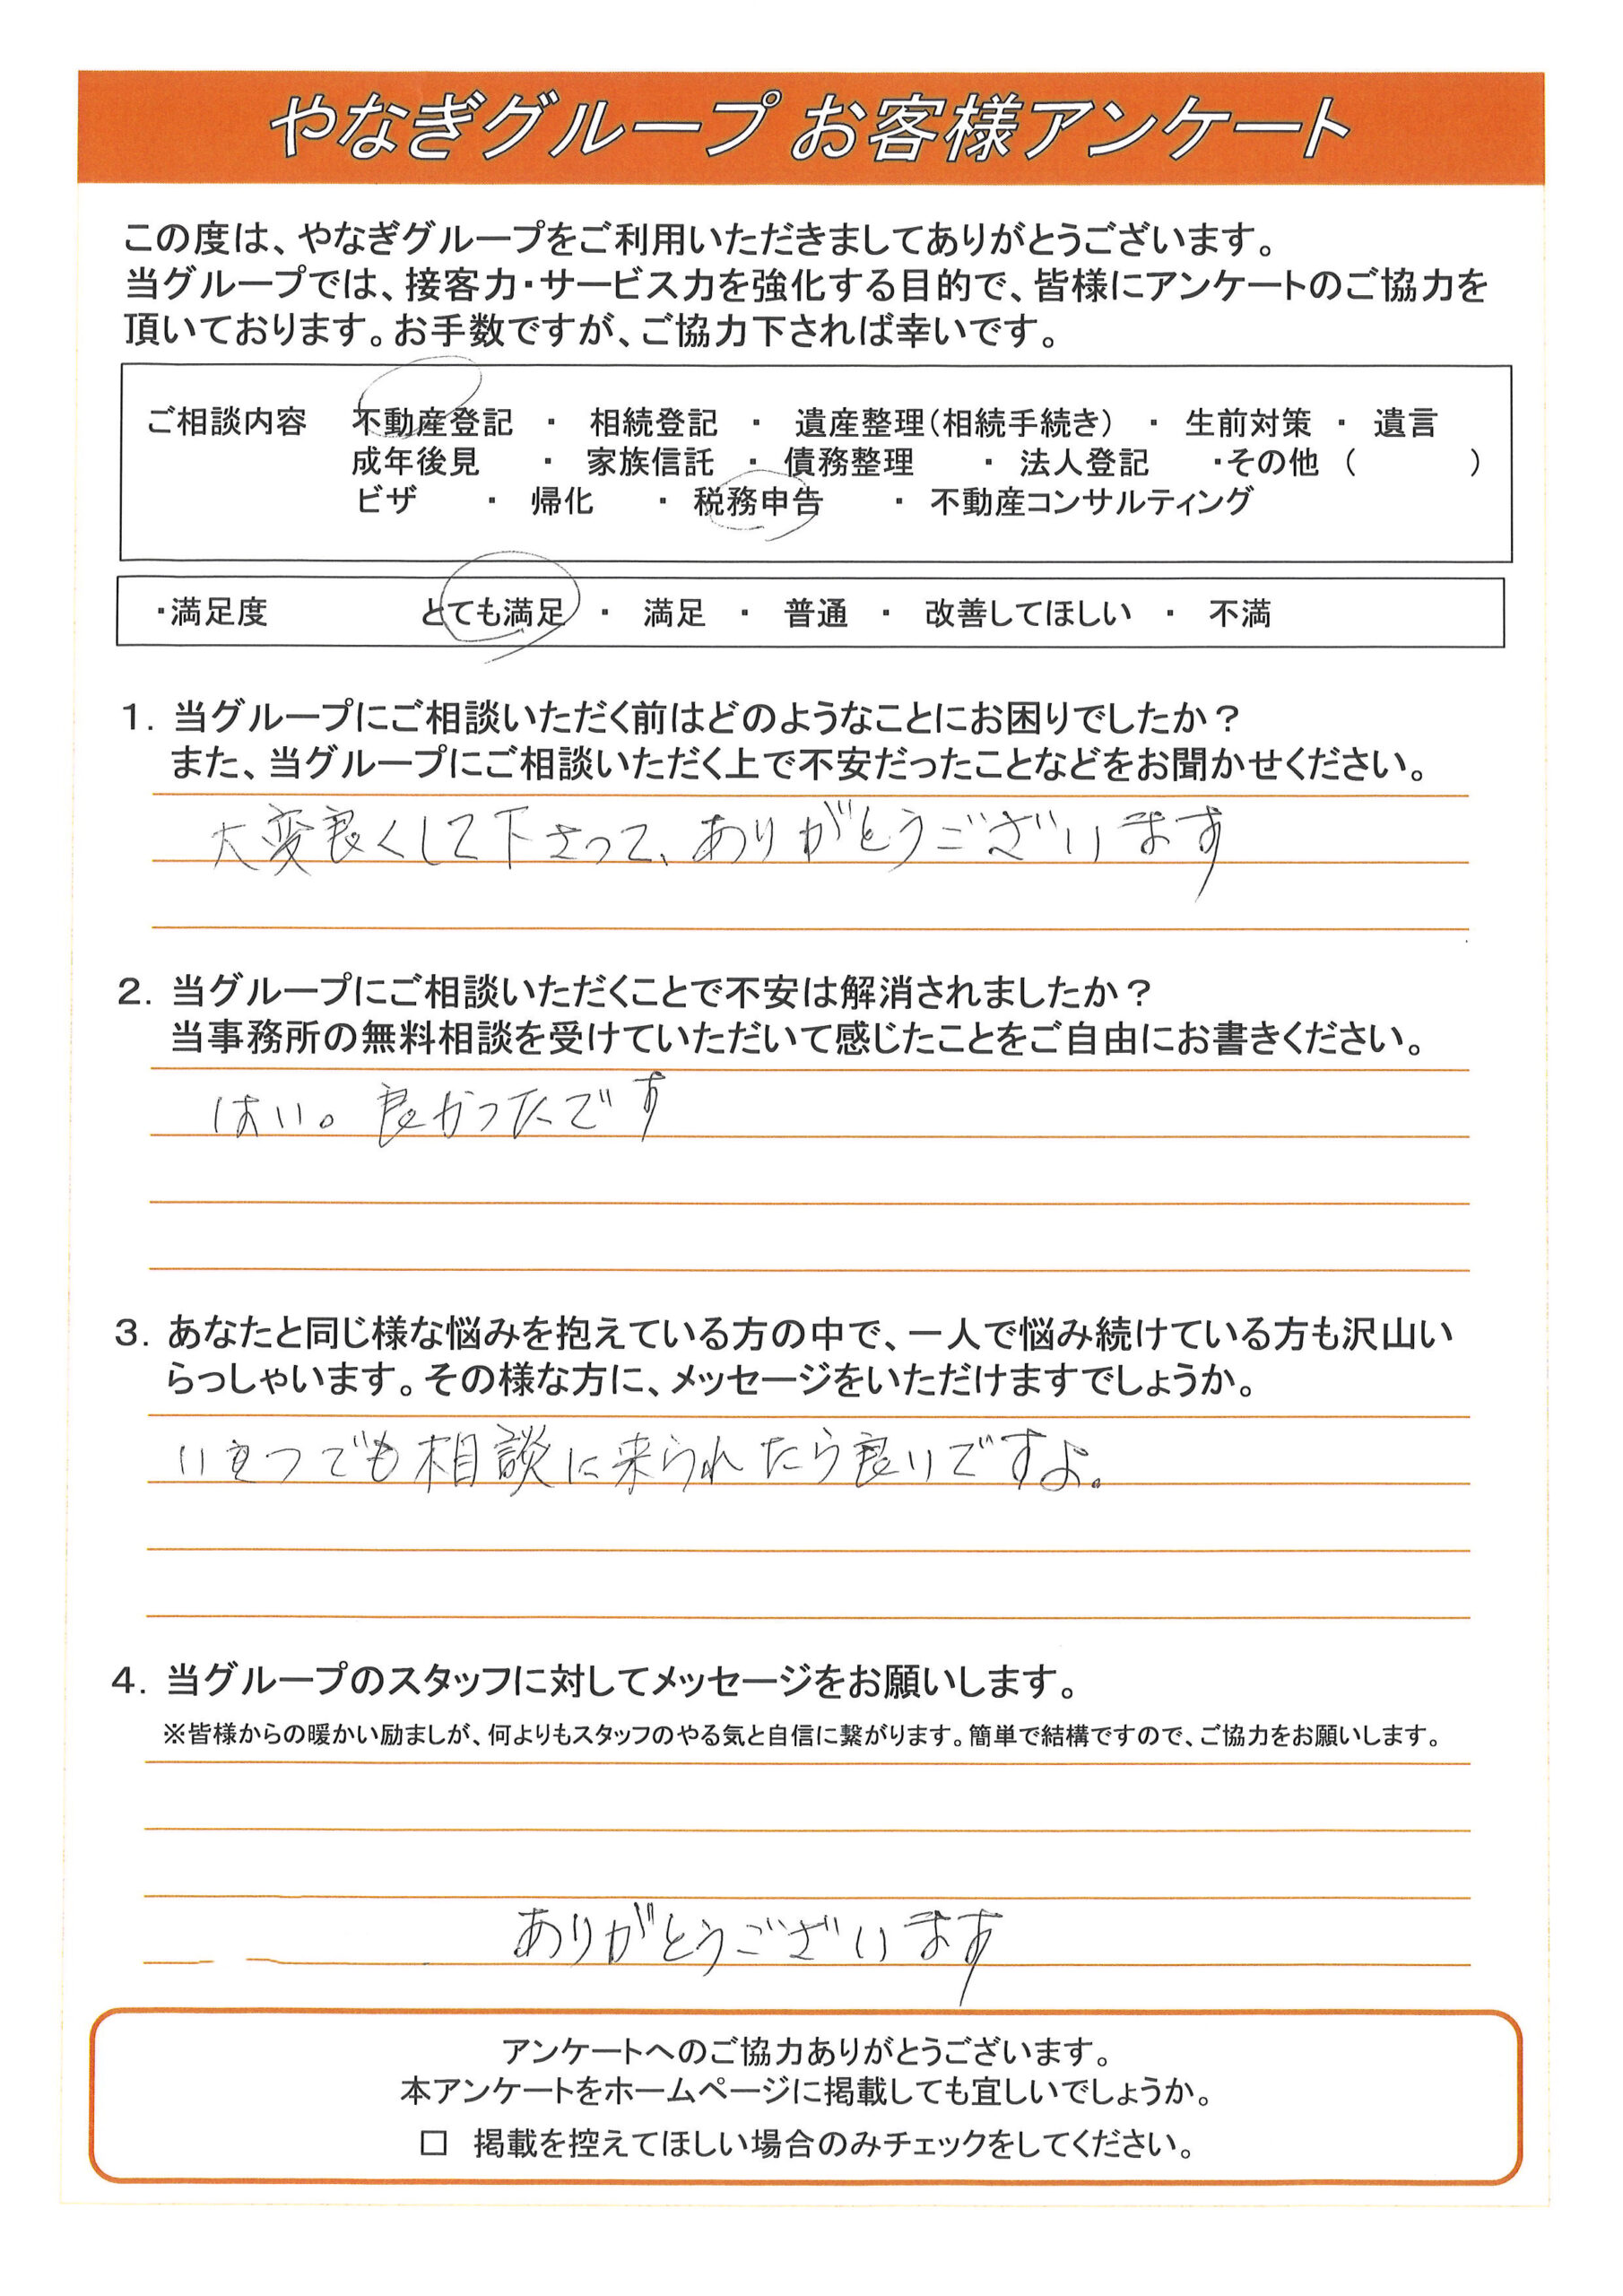 やなぎグループ お客様アンケート
この度は、やなぎグループをご利用いただきましてありがとうございます。
当グループでは、接客力・サービス力を強化する目的で、皆様にアンケートのご協力を
頂いております。お手数ですが、ご協力下されば幸いです。
ご相談内容　不動産登記 ・ 相続登記 ・ 遺産整理(相続手続き) ・ 生前対策 ・ 遺言
成年後見 ・ 家族信託 ・ 債務整理 ・ 法人登記 ・その他 (　　　)
ビザ ・ 帰化 ・ 税務申告 ・ 不動産コンサルティング
・満足度　とても満足 ・ 満足 ・ 普通 ・ 改善してほしい ・ 不満
1. 当グループにご相談いただく前はどのようなことにお困りでしたか？
また、当グループにご相談いただく上で不安だったことなどをお聞かせください。
大変良くして下さって、ありがとうございます
2. 当グループにご相談いただくことで不安は解消されましたか？
当事務所の無料相談を受けていただいて感じたことをご自由にお書きください。
はい。良かったです
3. あなたと同じ様な悩みを抱えている方の中で、一人で悩み続けている方も沢山い
らっしゃいます。その様な方に、メッセージをいただけますでしょうか。
いつでも相談に来られたら良いですよ。
4. 当グループのスタッフに対してメッセージをお願いします。
※皆様からの暖かい励ましが、何よりもスタッフのやる気と自信に繋がります。簡単で結構ですので、ご協力をお願いします。
ありがとうございます
アンケートへのご協力ありがとうございます。
本アンケートをホームページに掲載しても宜しいでしょうか。
□ 掲載を控えてほしい場合のみチェックをしてください。